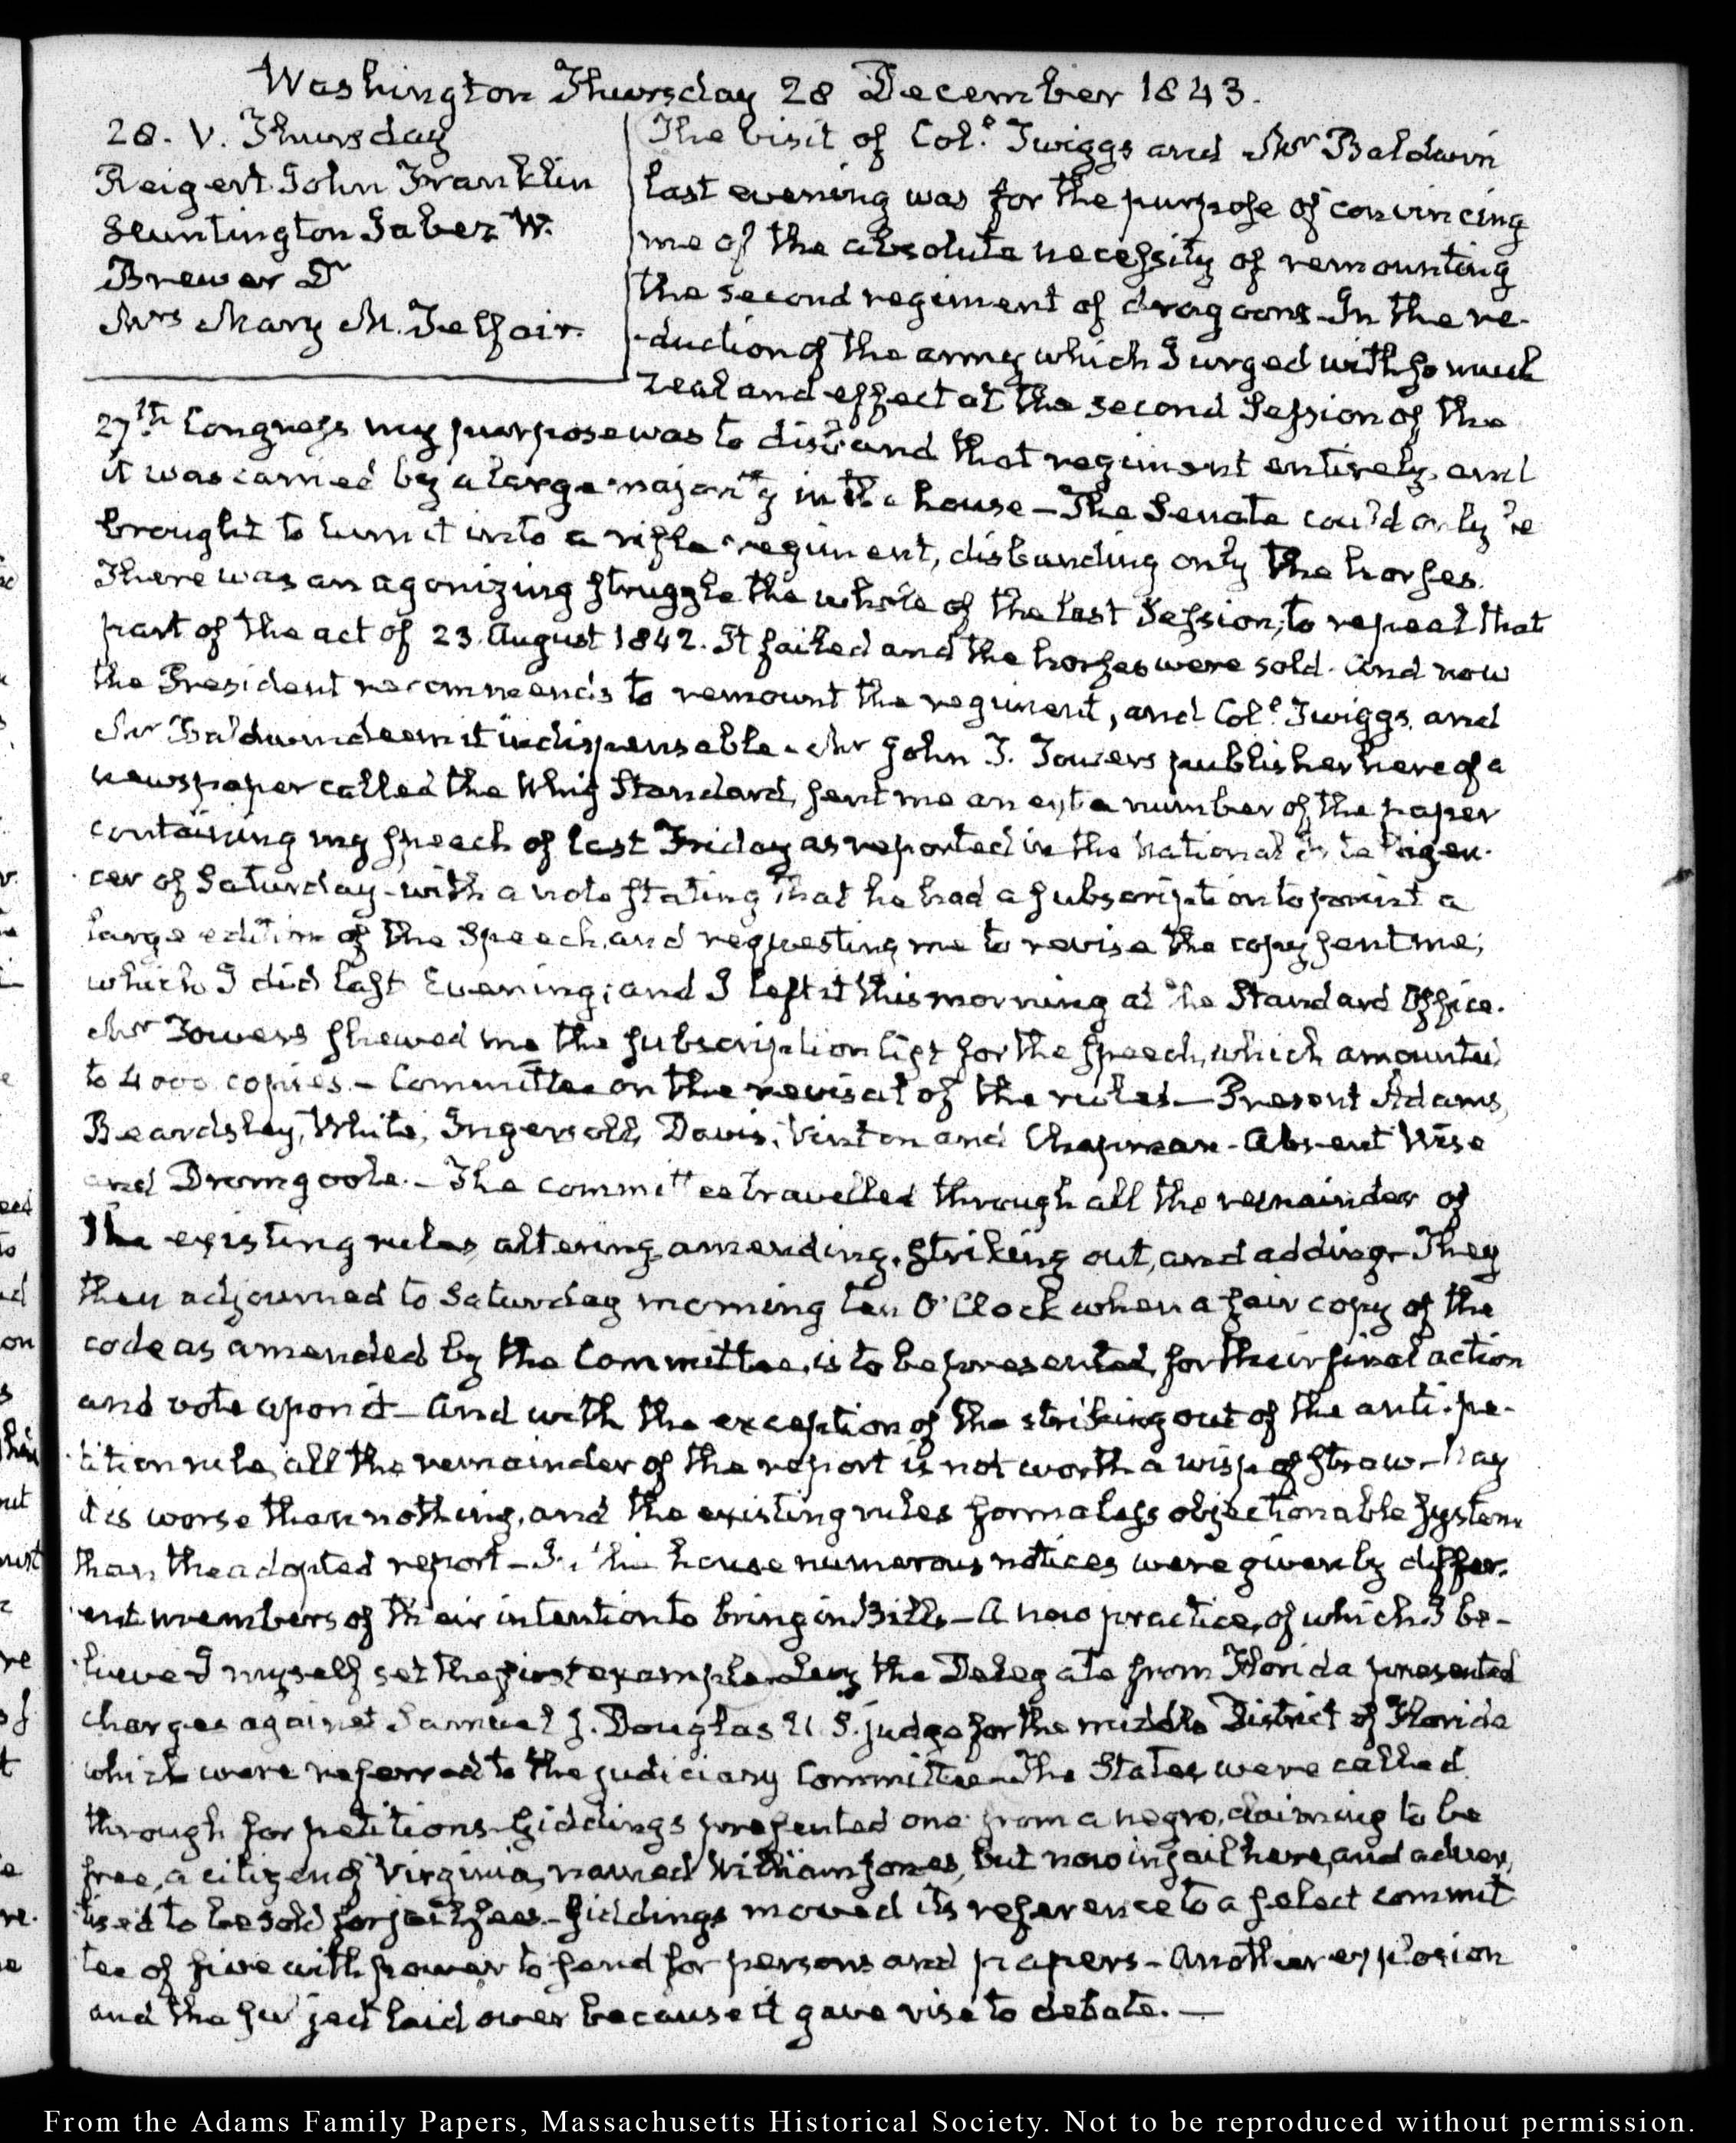 Washington Thursday 28 December 1843.
28. V. Thursday
Reigert John Franklin
Huntington Jabez W.
Brewer D
Mrs Mary M. Telfair.
The visit of Col.e Twiggs and Mr Baldwin
last evening was for the purpose of convincing
me of the absolute necessity of remounting
the second regiment of dragoons. In the re-
-duction of the army which I urged with so much
zeal and effect at the second Session of the
27.th Congress my purpose was to disband that regiment entirely, and
it was carried by a large majority in the house – The Senate could only be
brought to turn it into a rifle regiment, disbanding only the horses.
There was an agonizing struggle the whole of the last Session, to repeal that
part of the act of 23. August 1842. It failed and the horses were sold. And now
the President recommends to remount the regiment, and Col.e Twiggs and
Mr Baldwin deem it indispensable. Mr John T. Towers publisher here of a
newspaper called the Whig Standard, sent me an extra number of the paper
containing my speech of last Friday as reported in the National Intelligen-
cer of Saturday – with a note stating that he had a subscription to print a
large edition of the Speech, and requesting me to revise the copy sent me;
which I did last Evening; and I left it this morning at the Standard Office.
Mr Towers shewed me the subscription list for the speech, which amounted
to 4000 copies. – Committee on the revisal of the rules – Present Adams,
Beardsley, White, Ingersoll, Davis, Vinton and Chapman – Absent Wise
and Dromgoole. – The committee travelled through all the remainder of
the existing rules altering, amending, striking out, and adding – They
then adjourned to Saturday morning ten O'Clock when a fair copy of the
code as amended by the Committee, is to be presented for their final action
and vote upon it – And with the exception of the striking out of the anti-pe-
tition rule, all the remainder of the report is not worth a wisp of straw – Nay
it is worse than nothing, and the existing rules form a less objectionable system
than the adopted report – In the house numerous notices were given by differ-
ent members of their intention to bring in Bills – A new practice, of which I be-
lieve I myself set the first example. Levy the Delegate from Florida presented
charges against Samuel J. Douglas U.S. judge for the middle District of Florida
which were referred to the judiciary Committee – The States were called
through for petitions – Giddings presented one from a negro, claiming to be
free, a citizen of Virginia, named William Jones, but now in jail here, and adver-
tised to be sold for jail fees – Giddings moved its reference to a select commit
tee of five with power to send for persons and papers – Another explosion
and the subject laid over because it gave rise to debate. –
From the Adams Family Papers, Massachusetts Historical Society. Not to be reproduced without permission.